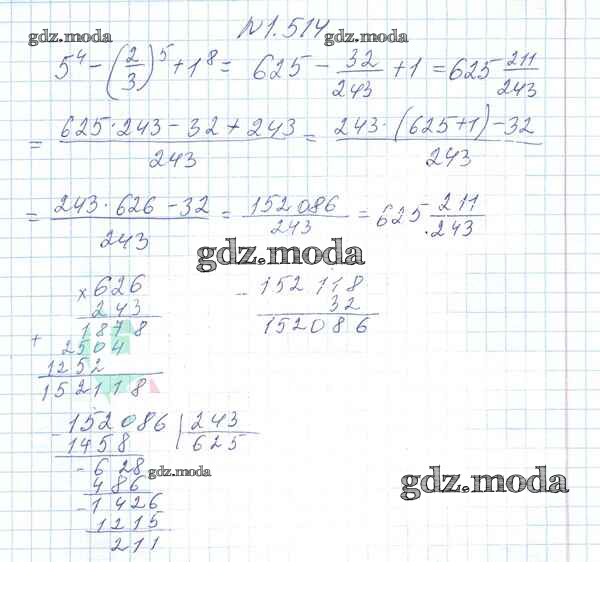 №1.514
gdz.moda gdz.moda
5⁴ - (2/3)⁵ + 1⁸ = 625 - 32/243 + 1 = 625 211/243
= (625 · 243 - 32 + 243)/243 = (243 · (625 + 1) - 32)/243
= (243 · 626 - 32)/243 = 152086/243 = 625 211/243
gdz.moda
× 626
243
1878
+ 2504
1252
152118
- 152 118
32
152086
- 152086 | 243
1458 | 625
- 628
486
- 1426
1215
211
gdz.moda
gdz.moda